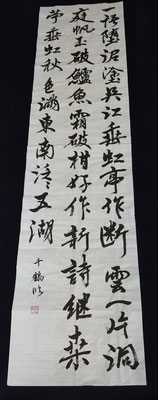 一語墮泥塗吳江垂虹亭作斷雲一片洞
庭帆玉破鱸魚霜破柑好作新詩継桒
苧垂虹秋色滿東南泛〻五湖
千鶴臨